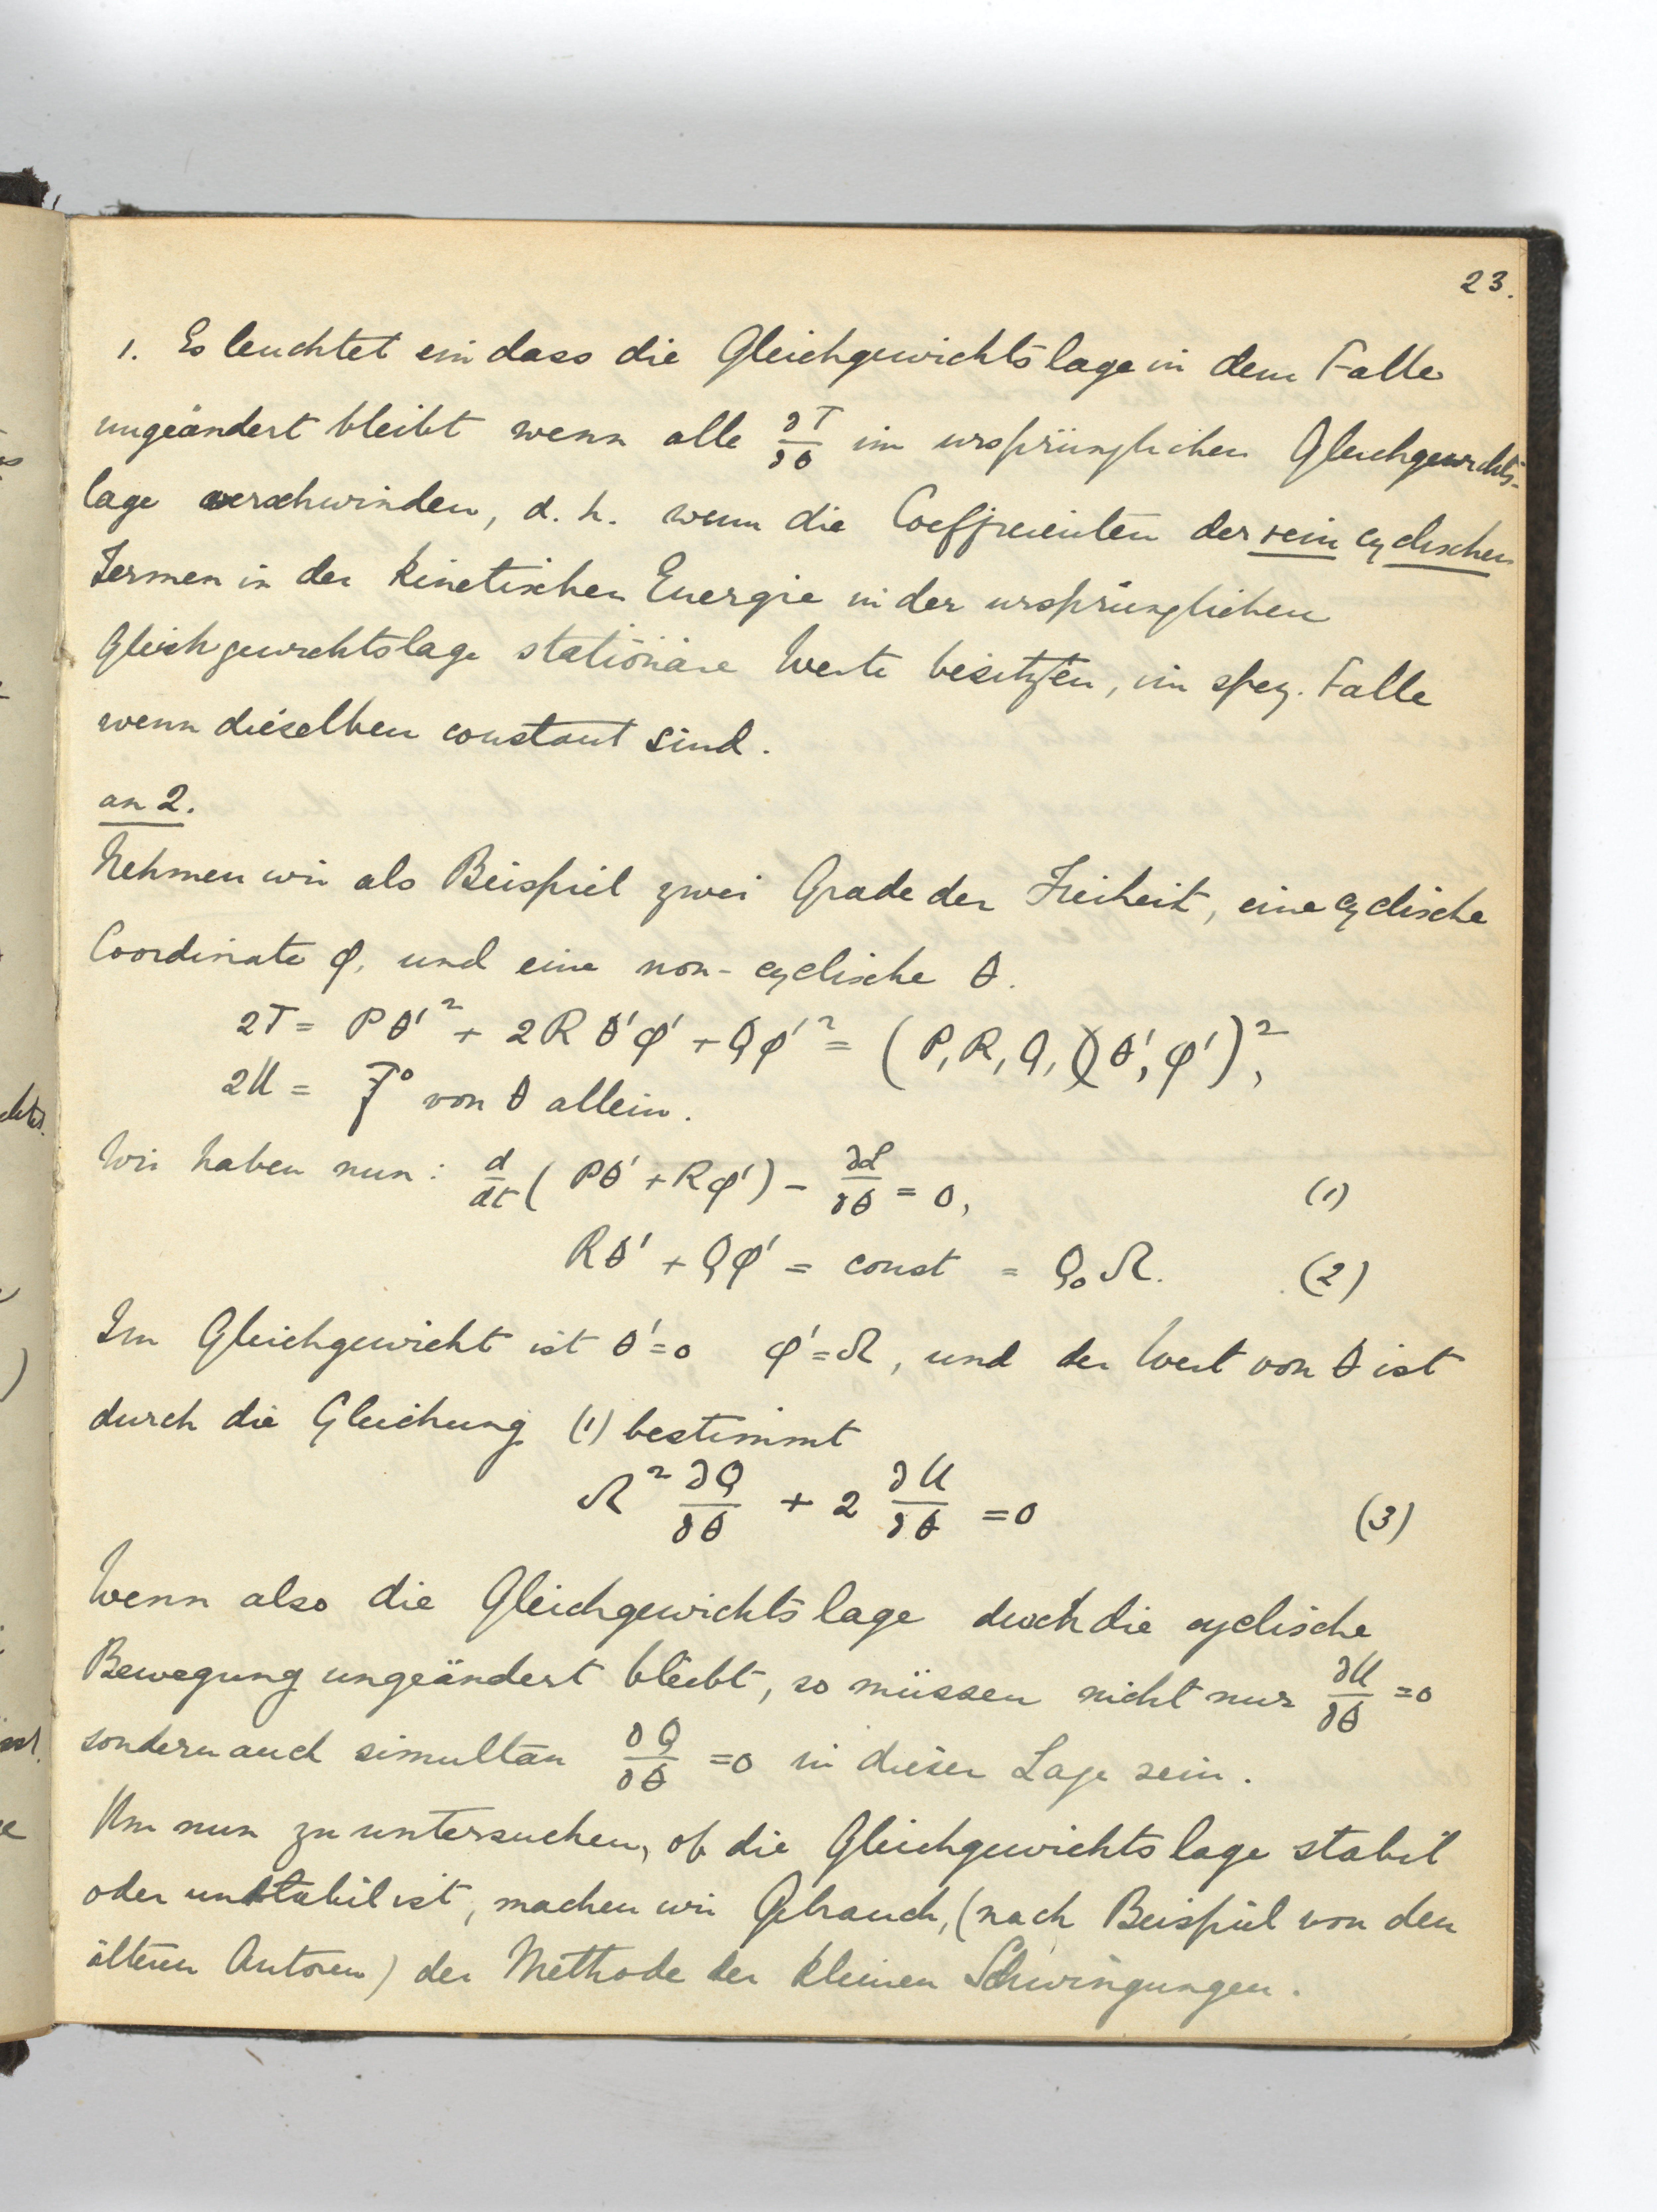 23.
1. Es leuchtet ein dass die Gleichgewichtslage in dem Falle
ungeändert bleibt wenn alle ∂T/∂θ im ursprünglichen Gleichgewichts-
lage verschwinden, d. h. wenn die Coefficienten der rein cyclischen
Termen in der kinetischen Energie in der ursprünglichen
Gleichgewichtslage stationäre Werte besitzen, im spez. Falle
wenn dieselben constant sind.
an 2.
Nehmen wir als Beispiel zwei Grade der Freiheit, eine cyclische
Coordinate φ, und eine non-cyclische θ.
2T = Pθ'² + 2Rθ'φ' + Qφ'² = (P, R, Q,)(θ', φ')²,
2U = F° von θ allein.
Wir haben nun: d/dt (Pθ' + Rφ') − ∂L/∂θ = 0, (1)
Rθ' + Qφ' = const = Q₀Ω. (2)
Im Gleichgewicht ist θ'=0 φ'=Ω, und der Wert von θ ist
durch die Gleichung (1) bestimmt
Ω² ∂Q/∂θ + 2 ∂U/∂θ = 0 (3)
Wenn also die Gleichgewichtslage durch die cyclische
Bewegung ungeändert bleibt, so müssen nicht nur ∂U/∂θ = 0
sondern auch simultan ∂Q/∂θ = 0 in dieser Lage sein.
Um nun zu untersuchen, ob die Gleichgewichtslage stabil
oder unstabil ist, machen wir Gebrauch, (nach Beispiel von den
älteren Autoren) der Methode der kleinen Schwingungen.